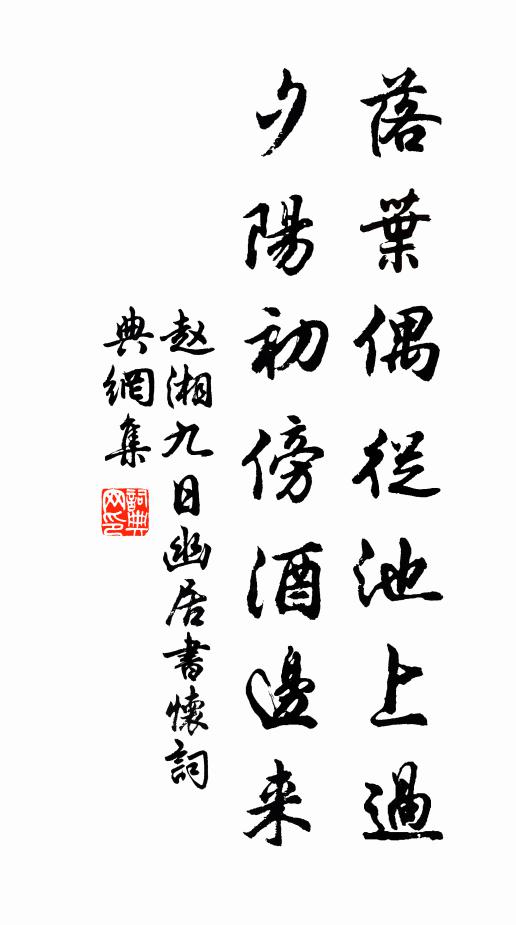 落葉偶從池上過
夕陽初傍酒邊来
赵湘九日幽居書懷詞
典網集
詞典
网印